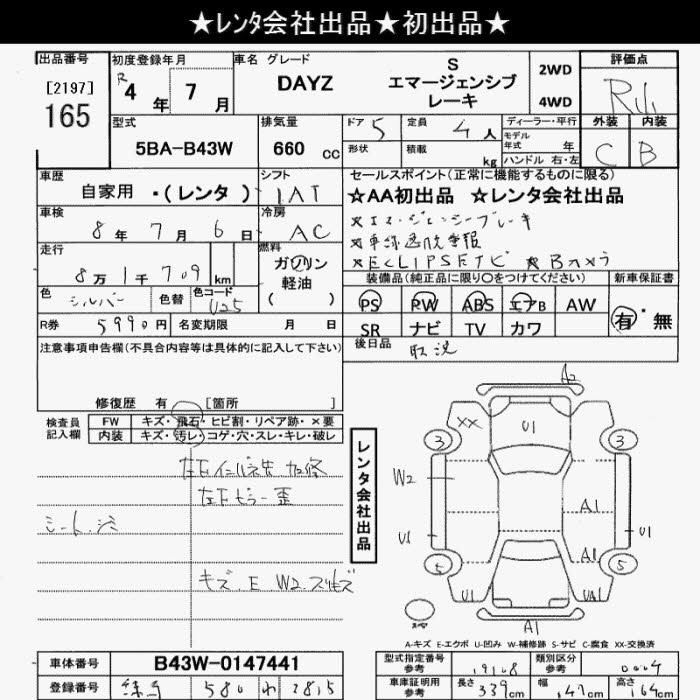 ★レンタ会社出品★初出品★
出品番号 初度登録年月 車名 グレード 評価点
[2197] R 4年 7月 DAYZ S エマージェンシブレーキ 2WD 4WD
165
型式 排気量 ドア 5 定員 4人 ディーラー・平行 外装 内装
5BA-B43W 660 cc 形状 積載 kg モデル年式 年 ハンドル 右・左 C B
車歴 シフト セールスポイント(正常に機能するものに限る)
自家用 ・(レンタ) IAT ☆AA初出品 ☆レンタ会社出品
車検 冷房
8年 7月 6日 AC
走行 燃料 ガソリン 軽油 ( )
8万 1千 709 km ★ECLIPSEナビ ★Bカメラ
色 色替 色コード 装備品(純正品に限り○をつけてください) 新車保証書
シルバー PS PW ABS エアB AW 有・無
R券 5990円 名変期限 月 日 SR ナビ TV カワ
注意事項申告欄(不具合内容等は具体的に記入して下さい) 後日品 取説
修復歴 有 [箇所 ]
検査員記入欄 FW キズ・飛石・ヒビ割・リペア跡・×要
内装 キズ・汚レ・コゲ・穴・スレ・キレ・破レ
左Fインパネ先 加修
左Fピラー歪
キズ.E W2.
レンタ会社出品
A2
XX U1
3 3
W2
A1
U1 U1
A1
5 5
U1 UA1
A1
スペア
A-キズ E-エクボ U-凹み W-補修跡 S-サビ C-腐食 XX-交換済
車体番号 B43W-0147441 型式指定番号 参考 19108 類別区分 参考 0004
登録番号 580 わ 2815 車庫証明用 参考 長さ 339cm 幅 147cm 高さ 164cm